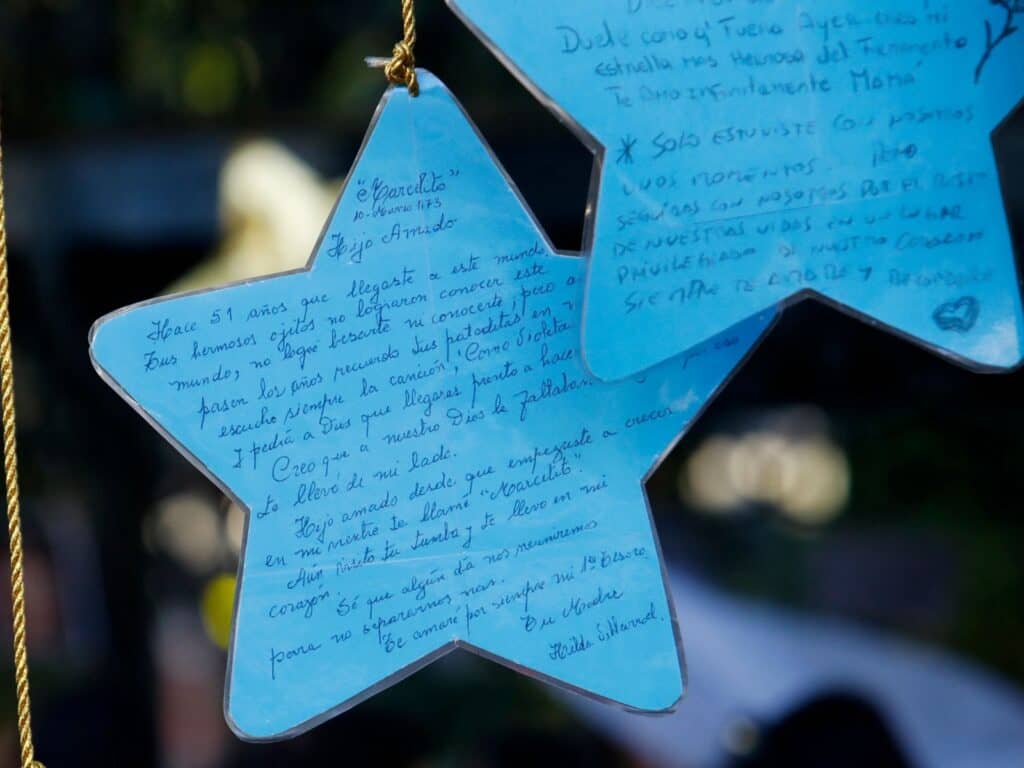 "Marcelito"
10-Marzo 1973
Hijo Amado
Hace 51 años que llegaste a este mundo,
Tus hermosos ojitos no lograron conocer este
mundo, no logré besarte ni conocerte, pero a
pasen los años recuerdo tus pataditas en
escucho siempre la canción, "Como Violeta
y pedía a Dios que llegaras pronto a hacer
Creo que a nuestro Dios le faltaban por eso
te llevó de mi lado.
Hijo amado desde que empezaste a crecer
en mi vientre te llamé "Marcelito".
Aún visito tu tumba y te llevo en mi
corazón.
Sé que algún día nos reuniremos
para no separarnos mas.
Te amaré por siempre mi 1º Tesoro.
Tu Madre
Hilda Villarroel.
Duele como si Fuera Ayer
estrella mas Hermosa del Firmamento
Te Amo infinitamente Mamá
* SOLO ESTUVISTE CON NOSOTROS
UNOS MOMENTOS. PERO
SEGUIRAS CON NOSOTROS POR EL RESTO
DE NUESTRAS VIDAS EN UN LUGAR
PRIVILEGIADO DE NUESTRO CORAZON
SIEMPRE TE AMARE Y